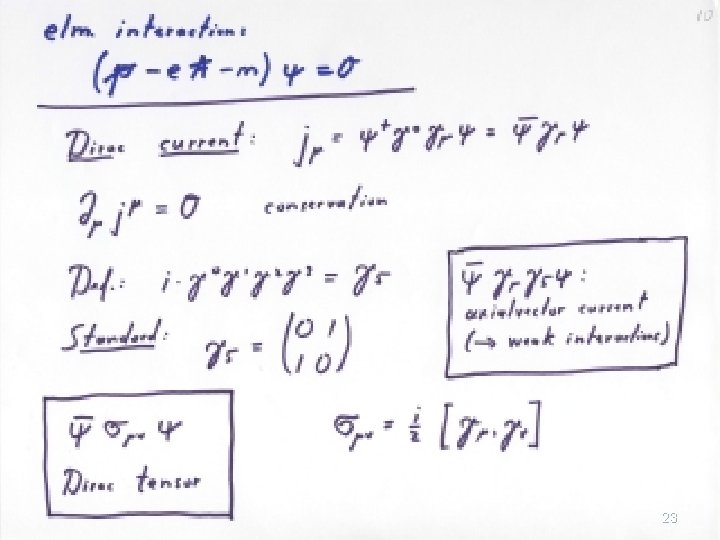 10
elm interactions
(p̸ - e A̸ - m) ψ = 0
Dirac current: jμ = ψ⁺ γ⁰ γμ ψ = ψ̄ γμ ψ
∂μ j^μ = 0 conservation
Def.: i · γ⁰ γ¹ γ² γ³ = γ5
Standard: γ5 = (0 1
1 0)
ψ̄ γμ γ5 ψ :
axialvector current
(→ weak interactions)
ψ̄ σμν ψ
Dirac tensor
σμν = i/2 [γμ, γν]
23